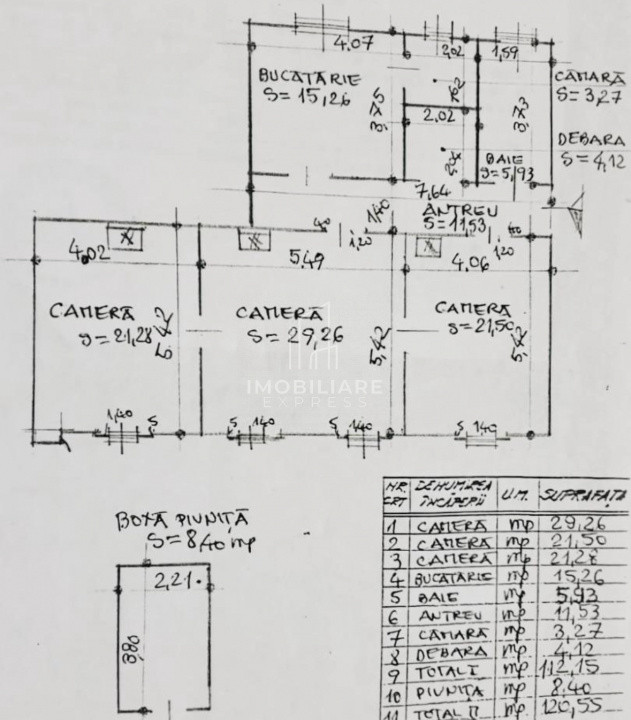 4.07
2,02
1,59
BUCATARIE
S= 15,26
3,75
2,02
3,73
CĂMARĂ
S= 3,27
DEBARA
S= 4,12
BAIE
S=5,93
7,64
ANTREU
S= 11,53
1,40
1,20
1,20
4,02
5,49
4,06
CAMERĂ
S= 21,28
CAMERĂ
S= 29,26
5,42
CAMERĂ
S=21,50
5,42
IMOBILIARE
EXPRESS
1,40
S
S
140
S
140
S
140
BOXĂ PIVNIȚĂ
S= 8,40 mp
2,21
3,80
NR. CRT
DENUMIREA ÎNCĂPERII
U.M.
SUPRAFAȚA
1 CAMERĂ mp 29,26
2 CAMERĂ mp 21,50
3 CAMERĂ mp 21,28
4 BUCATARIE mp 15,26
5 BAIE mp 5,93
6 ANTREU mp 11,53
7 CĂMARĂ mp 3,27
8 DEBARA mp 4,12
9 TOTAL I mp 112,15
10 PIVNIȚA mp 8,40
11 TOTAL II mp 120,55